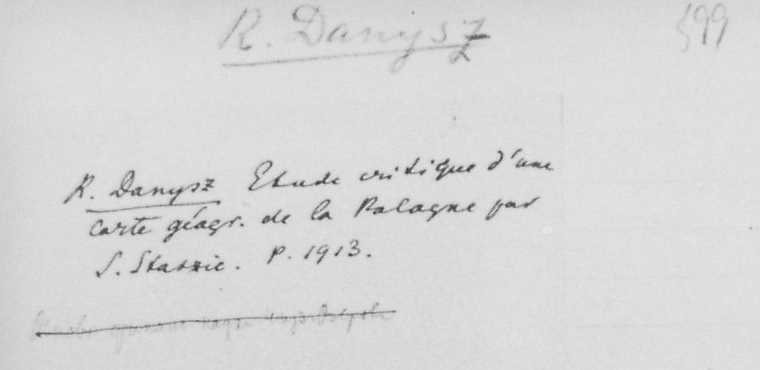 R. Danysz
R. Danysz Etude critique d'une
carte géogr. de la Pologne par
S. Staszic. P. 1913.